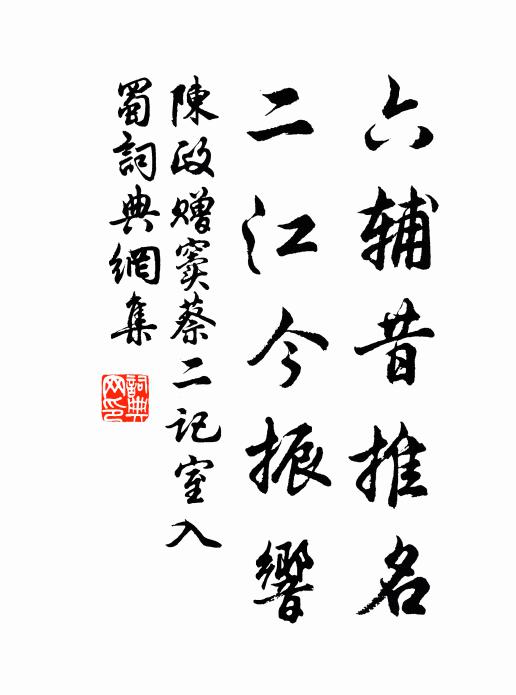 六辅昔推名
二江今振響
陳政贈竇蔡二記室入
蜀詞典網集
詞典网印